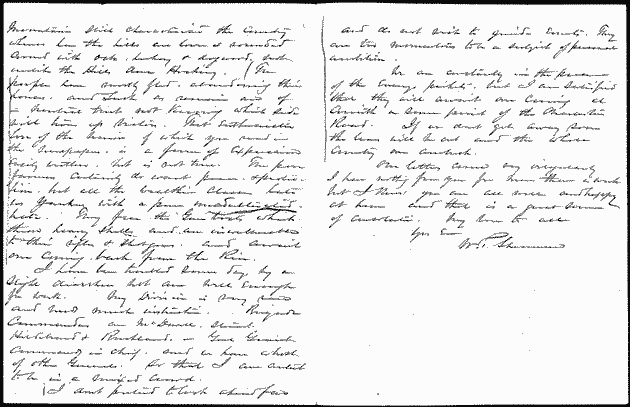 Mountains still characterize the Country
where here the hills are lower & rounded
covered with oak, hickory & dogwood, not
unlike the Hills down Hocking. The
people have mostly fled, abandoning their
houses, and such as remain are of
a neutral tint not knowing which side
will turn up victors. That enthusiastic
love of the Union of which you read in
the newspapers is a form of expression
easily written, but is not true. The poor
farmers certainly do want peace & protec-
tion, but all the wealthier classes hate
us Yankees with a pure unadulterated
hate. They fear the Gun boats which
throw heavy shells and are invulnerable
to their rifles & shotguns, and await
our coming back from the River.
I have been troubled some days by a
slight diarrhea but am well enough
for work. My Division is very raw
and needs much instruction. Brigade
Commanders are McDowell, Stuart,
Hildebrand & Buckland. Genl Grant
commands in chief, and we have a host
of other Generals. So that I am content
to be in a mixed crowd.
I don't pretend to look ahead far
and do not wish to guide events. They
are too momentous to be a subject of personal
ambition.
We are constantly in the presence
of the Enemy's pickets, but I am satisfied
that they will await our coming at
Corinth or some point of the Charleston
Road. If we don't get away soon
the leaves will be out and the whole
Country an ambush.
Our letters come very irregularly
I have nothing from you for more than a week
but I know you are all well and happy
at home and that is a great source
of consolation. My love to all
Yrs Ever
W. T. Sherman